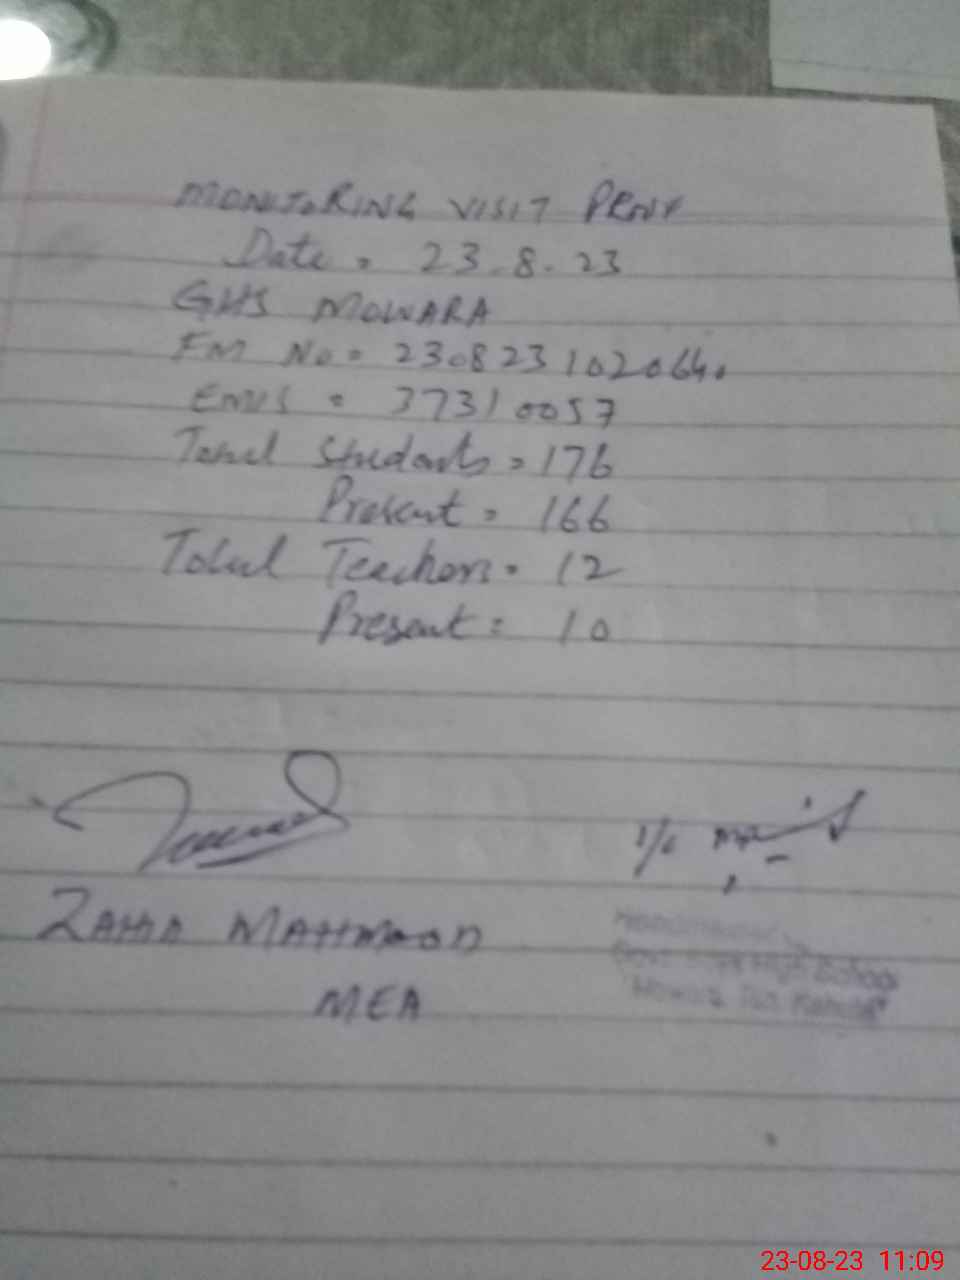 MONITORING VISIT PROXY
Date = 23-8-23
GHS MOWARA
FM No = 230823102064.
EMIS = 37310057
Total Students = 176
Present = 166
Total Teachers = 12
Present = 10
I/C
ZAHID MAHMOOD
MEA
High School
23-08-23 11:09